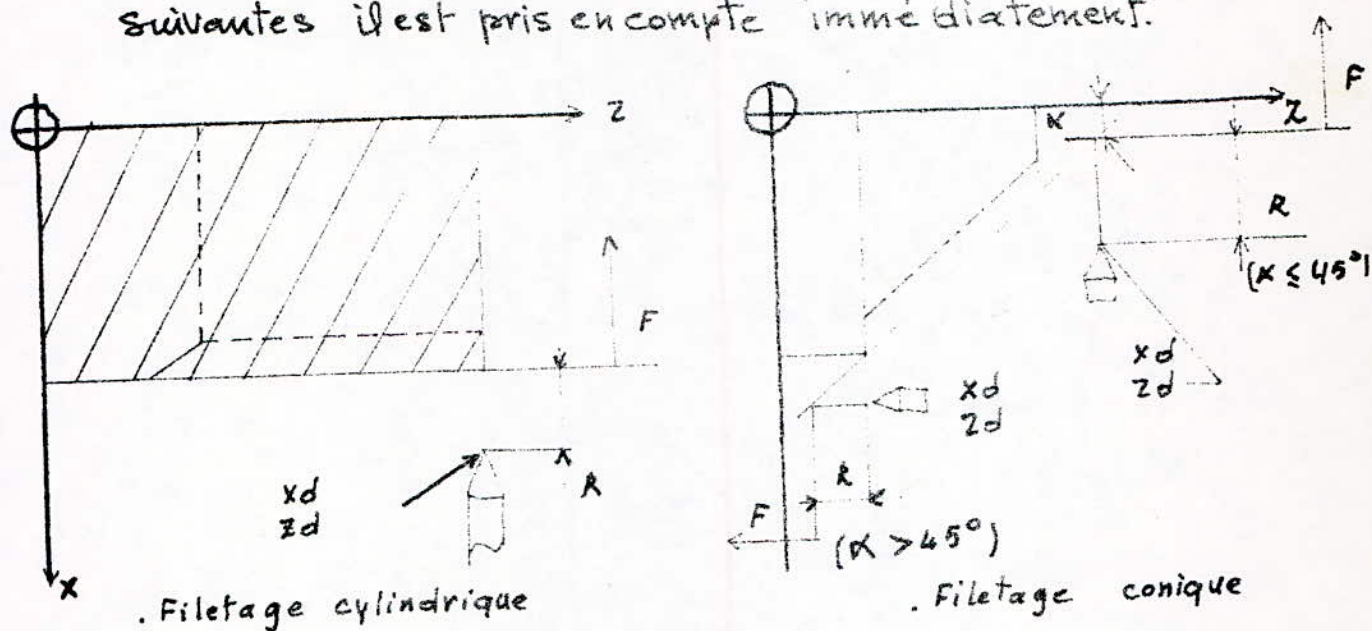 suivantes il est pris en compte immédiatement.
Z
F
xd
zd
R
X
. Filetage cylindrique
α
F
Z
R
(α ≤ 45°)
xd
zd
xd
zd
R
F
(α > 45°)
. Filetage conique